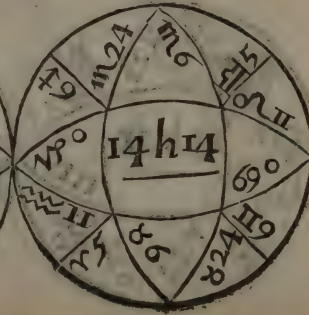 ♏24 ♏6
♐9 ♎5
♌11
♑0 14h14 ♋0
♒11 ♊9
♈5 ♉6 ♉24